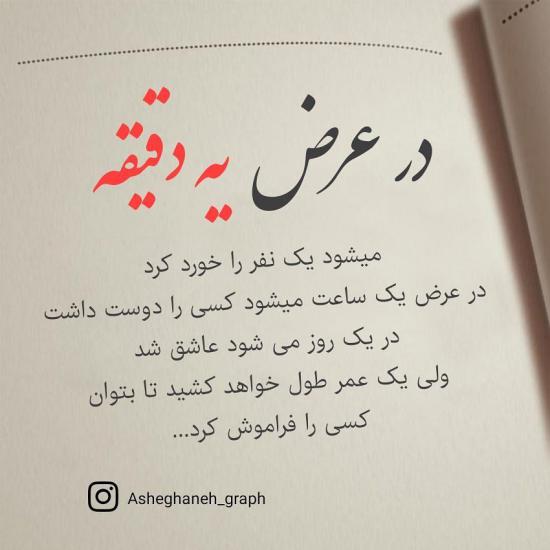 در عرض یه دقیقه
میشود یک نفر را خورد کرد
در عرض یک ساعت میشود کسی را دوست داشت
در یک روز می شود عاشق شد
ولی یک عمر طول خواهد کشید تا بتوان
کسی را فراموش کرد...
Asheghaneh_graph